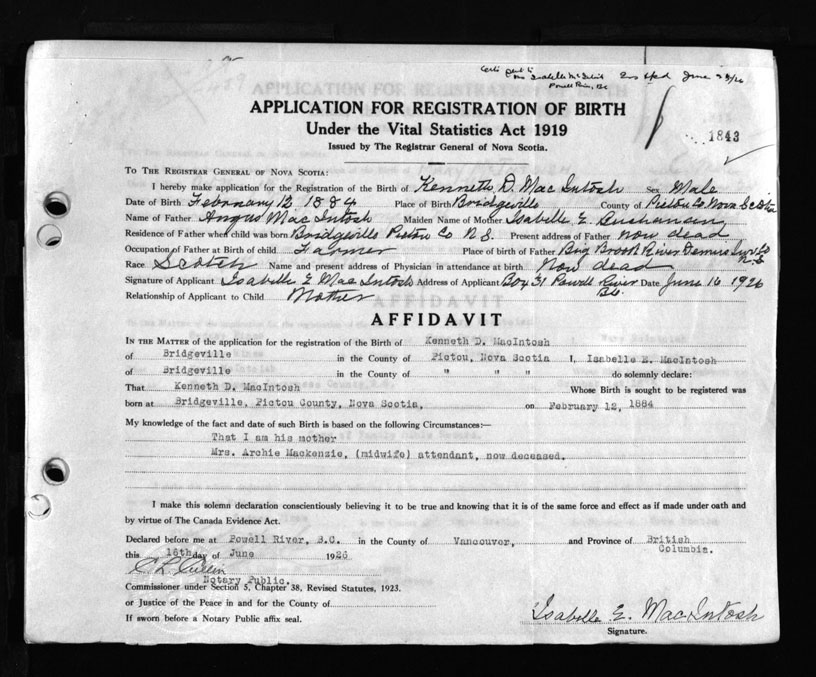 Certi sent to
Mrs Isabelle McIntosh
Powell River, B.C. June 23/26
APPLICATION FOR REGISTRATION OF BIRTH
Under the Vital Statistics Act 1919
Issued by The Registrar General of Nova Scotia.
1843
TO THE REGISTRAR GENERAL OF NOVA SCOTIA:
I hereby make application for the Registration of the Birth of Kenneth D. MacIntosh Sex Male
Date of Birth February 12 1884 Place of Birth Bridgeville County of Pictou Co Nova Scotia
Name of Father Angus MacIntosh Maiden Name of Mother Isabelle E. Buchanan
Residence of Father when child was born Bridgeville Pictou Co N.S. Present address of Father now dead
Occupation of Father at Birth of child Farmer Place of birth of Father Big Brook River Denis Inv. Co
N.S
Race Scotch Name and present address of Physician in attendance at birth Now dead
Signature of Applicant Isabelle E MacIntosh Address of Applicant Box 31 Powell River Date June 16 1926
B.C.
Relationship of Applicant to Child Mother
AFFIDAVIT
IN THE MATTER of the application for the registration of the Birth of Kenneth D. MacIntosh
of Bridgeville in the County of Pictou, Nova Scotia I, Isabelle E. MacIntosh
of Bridgeville in the County of " " " do solemnly declare:
That Kenneth D. MacIntosh Whose Birth is sought to be registered was
born at Bridgeville, Pictou County, Nova Scotia, on February 12, 1884
My knowledge of the fact and date of such Birth is based on the following Circumstances:—
That I am his mother
Mrs. Archie Mackenzie, (midwife) attendant, now deceased.
I make this solemn declaration conscientiously believing it to be true and knowing that it is of the same force and effect as if made under oath and
by virtue of The Canada Evidence Act.
Declared before me at Powell River, B.C. in the County of Vancouver, and Province of British
Columbia.
this 16th day of June 1926
Notary Public.
Commissioner under Section 5, Chapter 38, Revised Statutes, 1923.
or Justice of the Peace in and for the County of
If sworn before a Notary Public affix seal.
Isabelle E. MacIntosh
Signature.